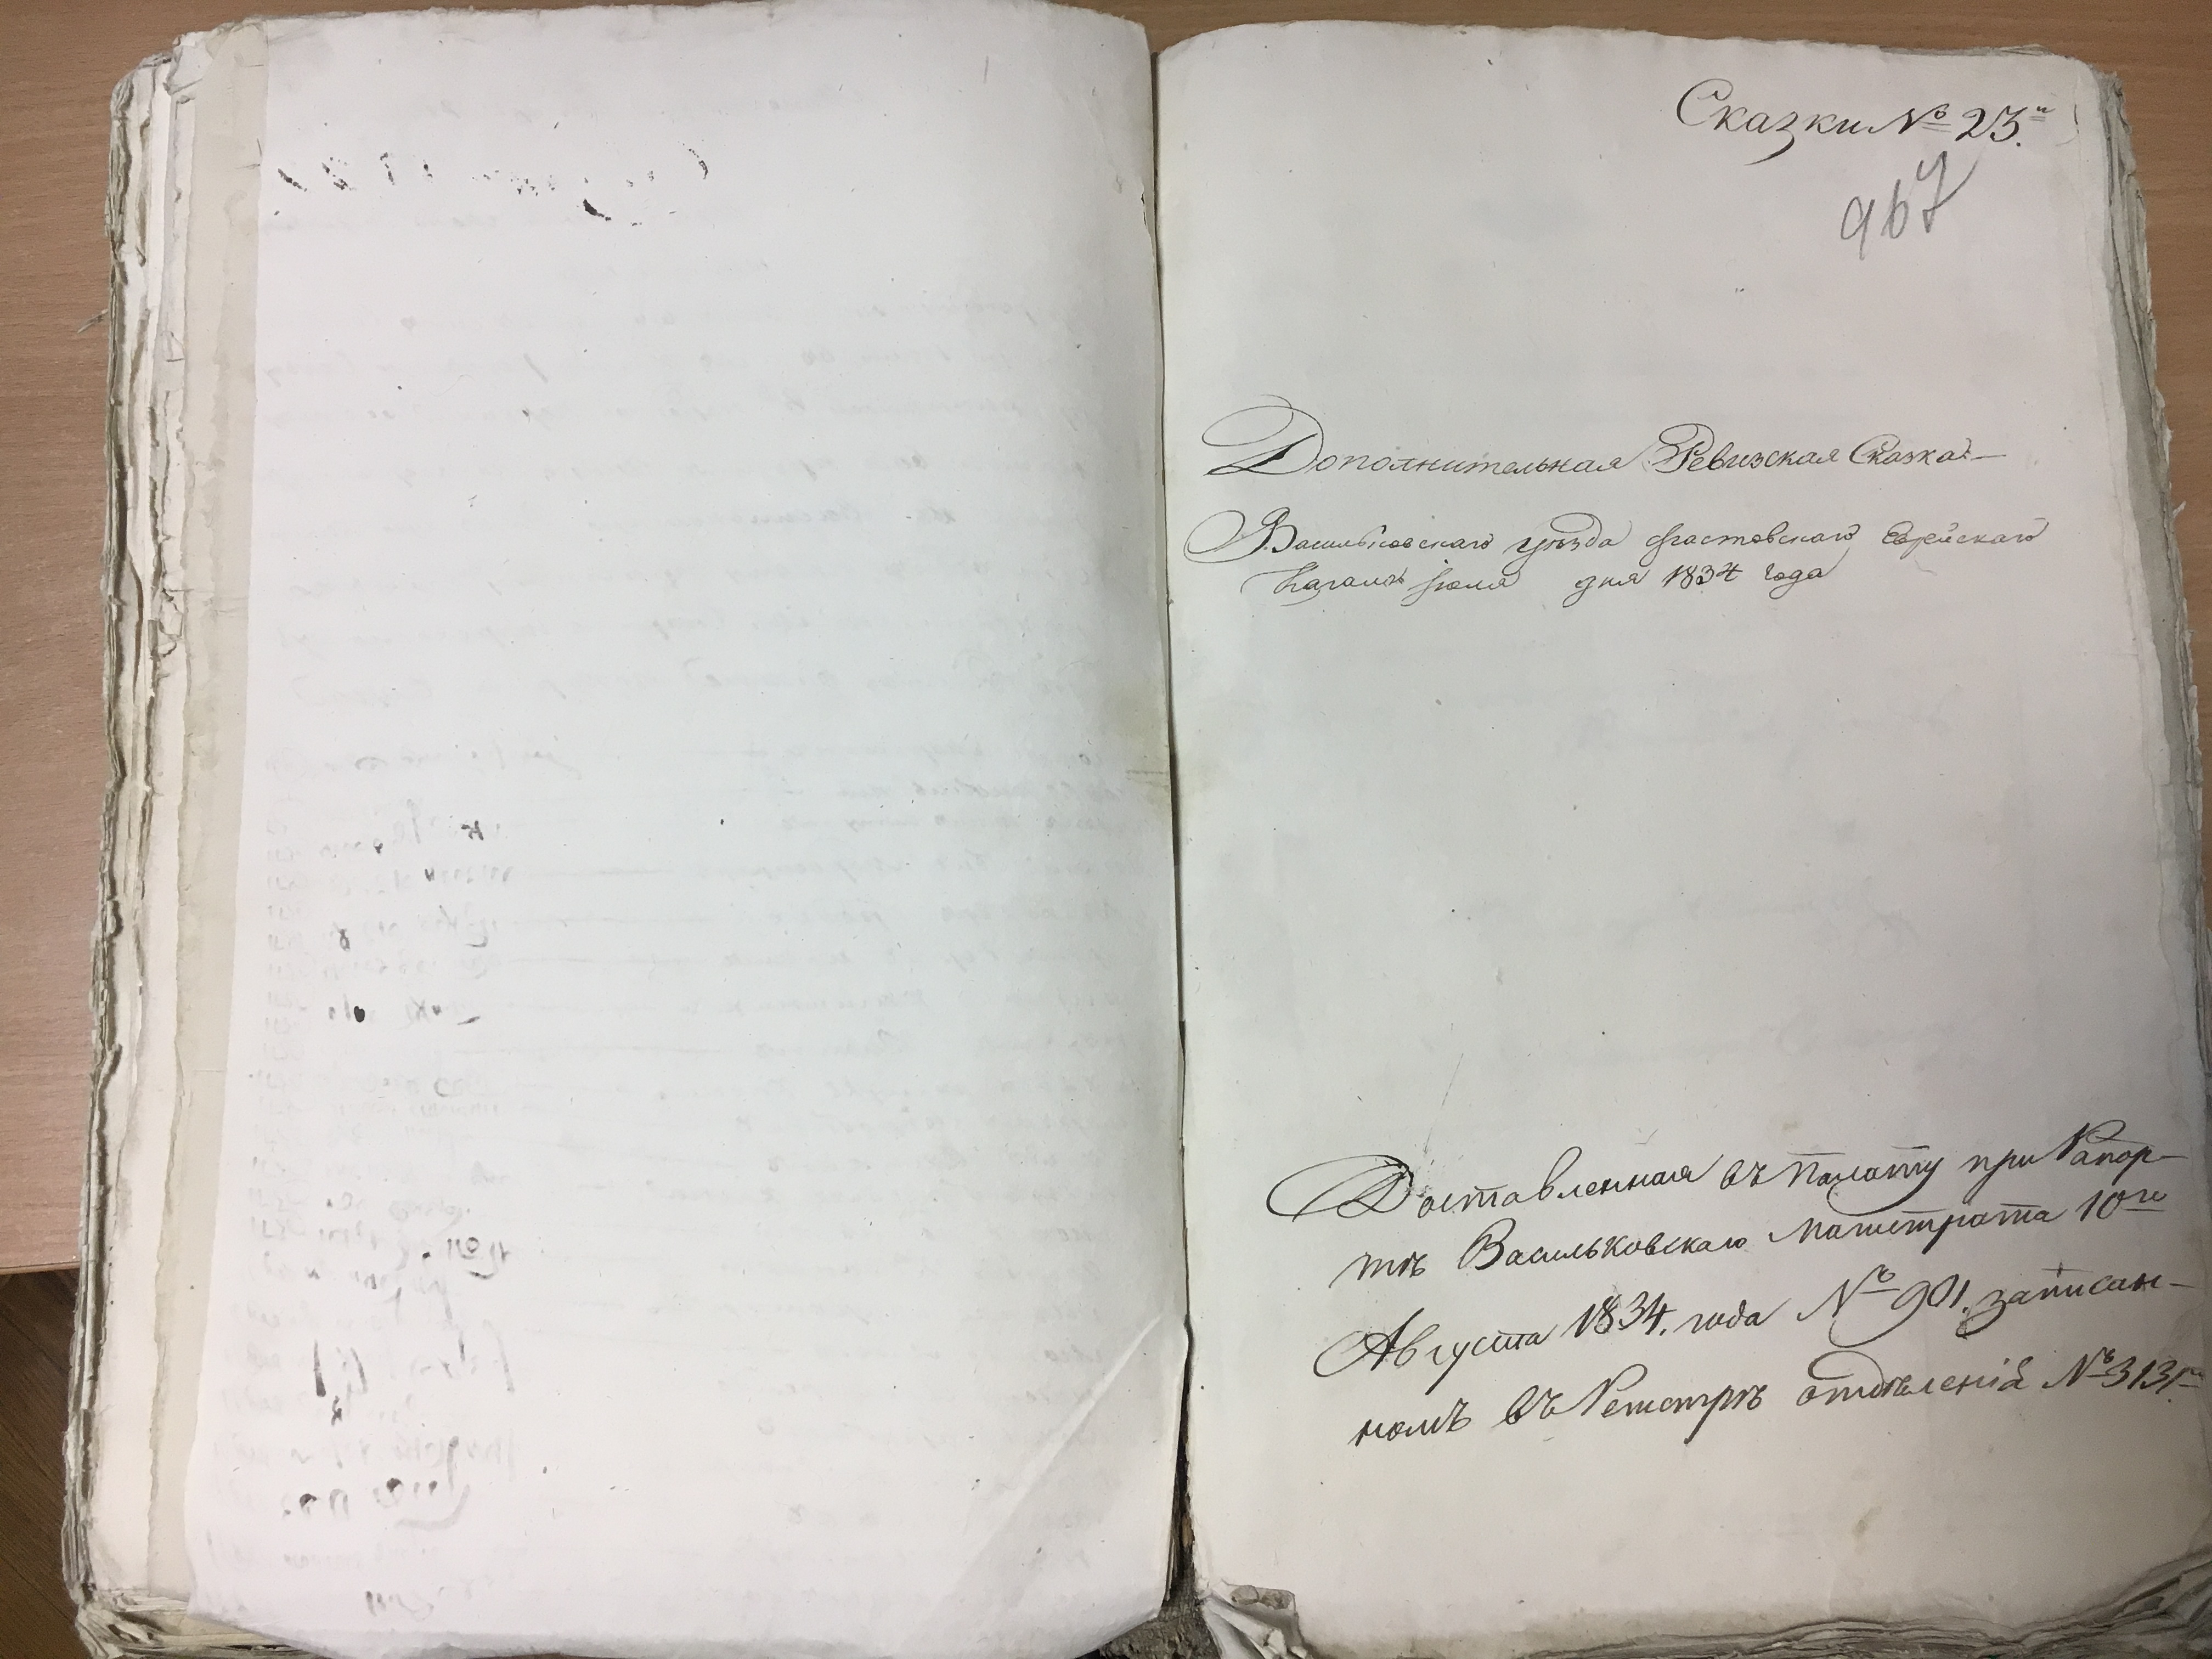 Сказки № 23.й
967
Дополнительная Ревизская Сказка
Васильковскаго уѣзда Фастовскаго Еврейскаго
Кагала Іюля дня 1834 года
Доставленная въ Палату при Рапор-
тѣ Васильковскаго Магистрата 10го
Августа 1834. года № 901. записан-
номъ въ Регистрѣ отдѣленія №